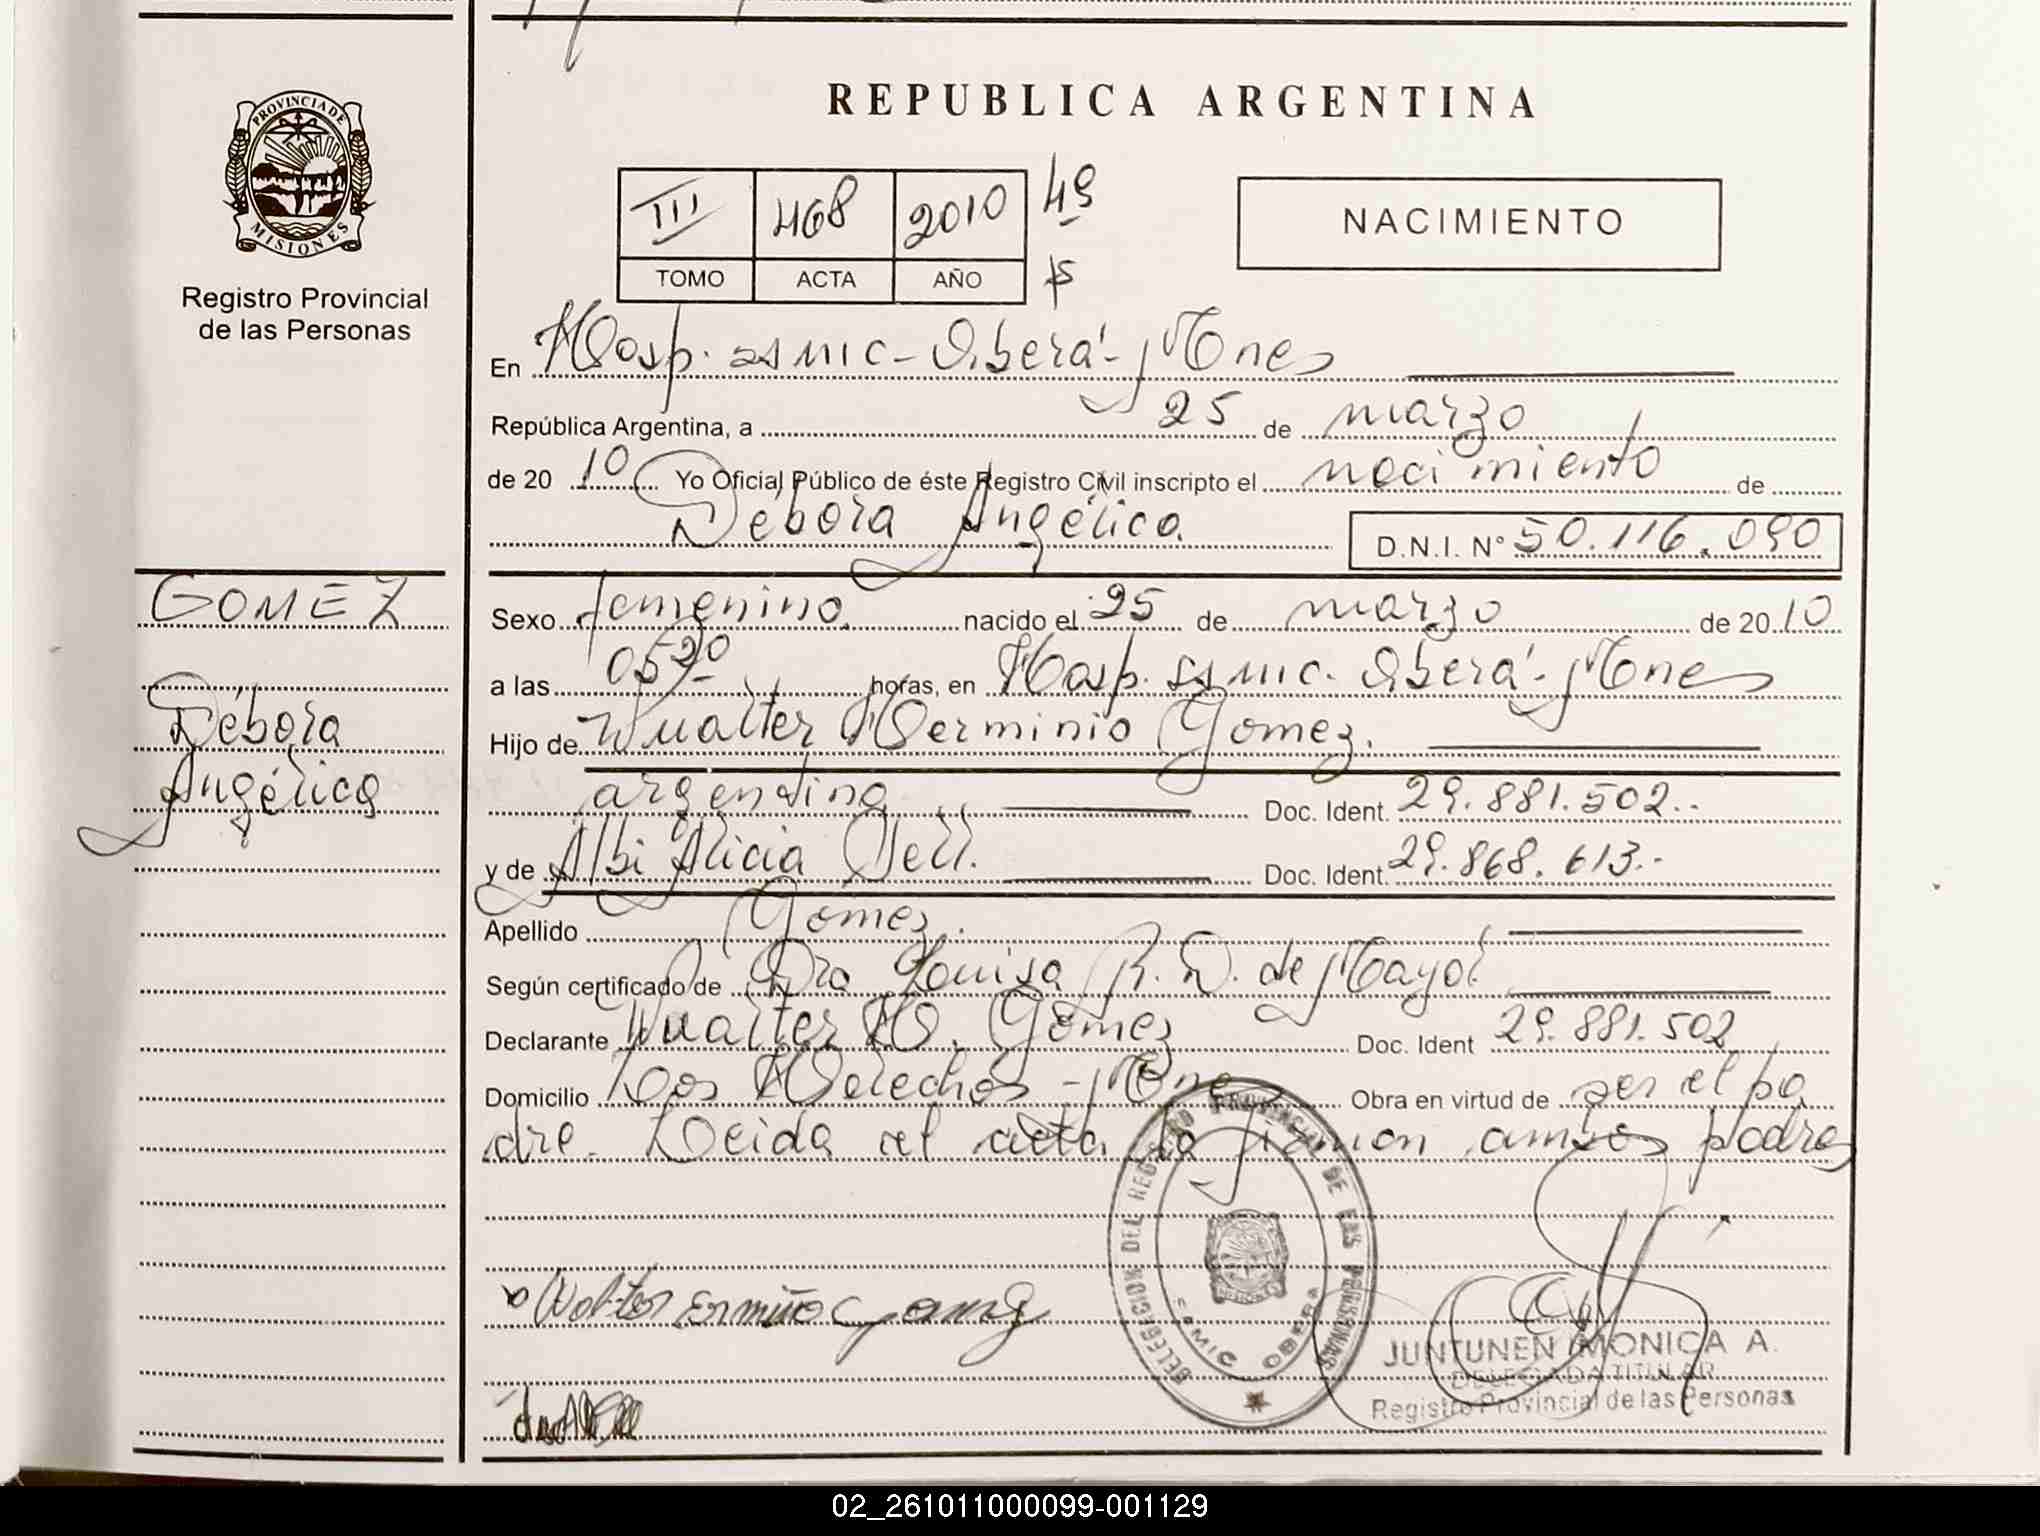 REPUBLICA ARGENTINA
PROVINCIA DE
MISIONES
Registro Provincial
de las Personas
III 468 2010 49
TOMO ACTA AÑO
NACIMIENTO
En Hosp. SAMIC - Oberá - Mnes
República Argentina, a 25 de marzo
de 20 10 Yo Oficial Público de éste Registro Civil inscripto el nacimiento de
Débora Angélica. D.N.I. N° 50.116.090
GOMEZ
Débora
Angélica
Sexo femenino. nacido el 25 de marzo de 20 10
a las 05 20 horas, en Hosp. SAMIC. Oberá - Mnes
Hijo de Wualter Herminio Gomez.
argentino Doc. Ident. 29.881.502.-
y de Albi Alicia Doc. Ident. 29.868.613.-
Apellido Gomez.
Según certificado de Dra Louisa R. D. de
Declarante Wualter H. Gomez Doc. Ident 29.881.502
Domicilio Los Helechos - Mnes Obra en virtud de ser el pa
dre. Leida el acta la firman ambos padres
Walter Ermiño Gomez
DELEGACION DEL REGISTRO PROVINCIAL DE LAS PERSONAS
SAMIC OBERA
JUNTUNEN MONICA A.
DELEGADA TITULAR
Registro Provincial de las Personas
02_261011000099-001129